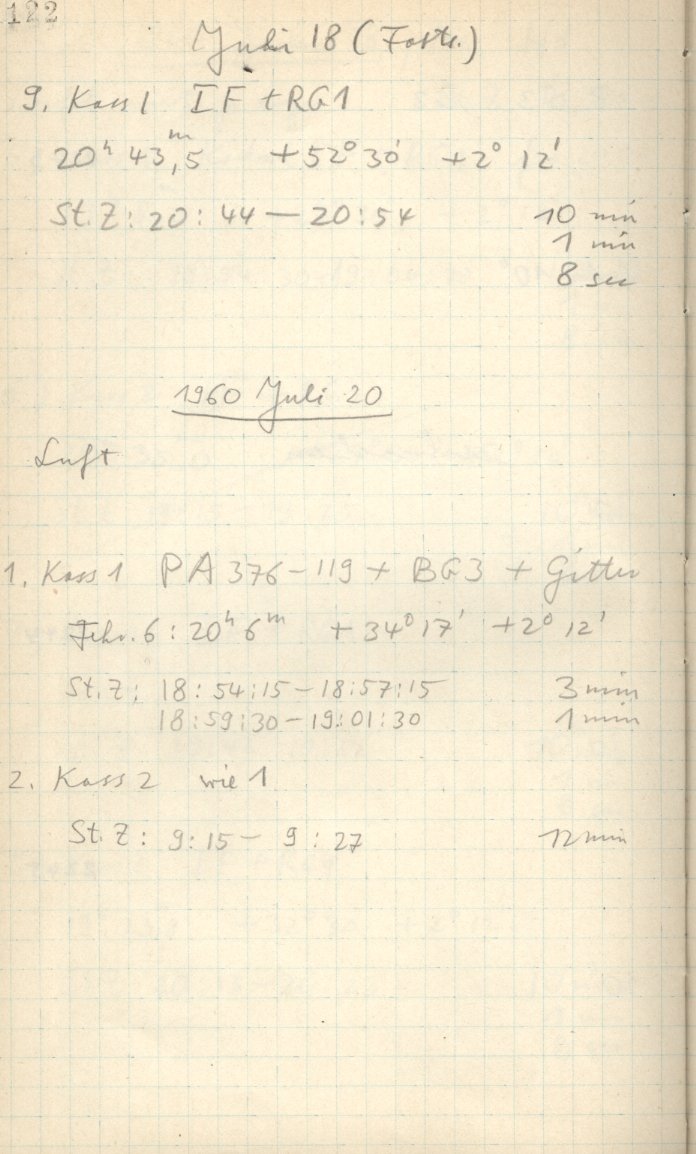 122
Juli 18 (Forts.)
9. Kass 1 IF + RG1
20ʰ 43,ᵐ5 +52° 30' +2° 12'
St. Z: 20:44 — 20:54 10 min
1 min
8 sec
1960 Juli 20
Luft
1. Kass 1 PA 376-119 + BG3 + Gitter
6: 20ʰ 6ᵐ +34° 17' +2° 12'
St. Z: 18:54:15 - 18:57:15 3 min
18:59:30 - 19:01:30 1 min
2. Kass 2 wie 1
St. Z: 9:15 - 9:27 12 min